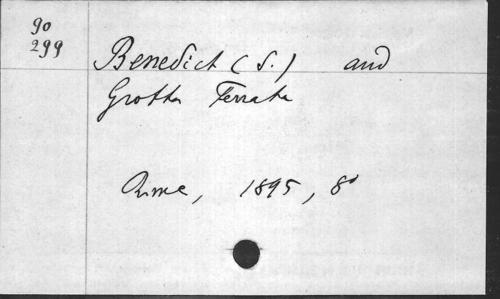 90
299
Benedict (S.) and
Grotta Ferrata
Rome, 1895, 8°